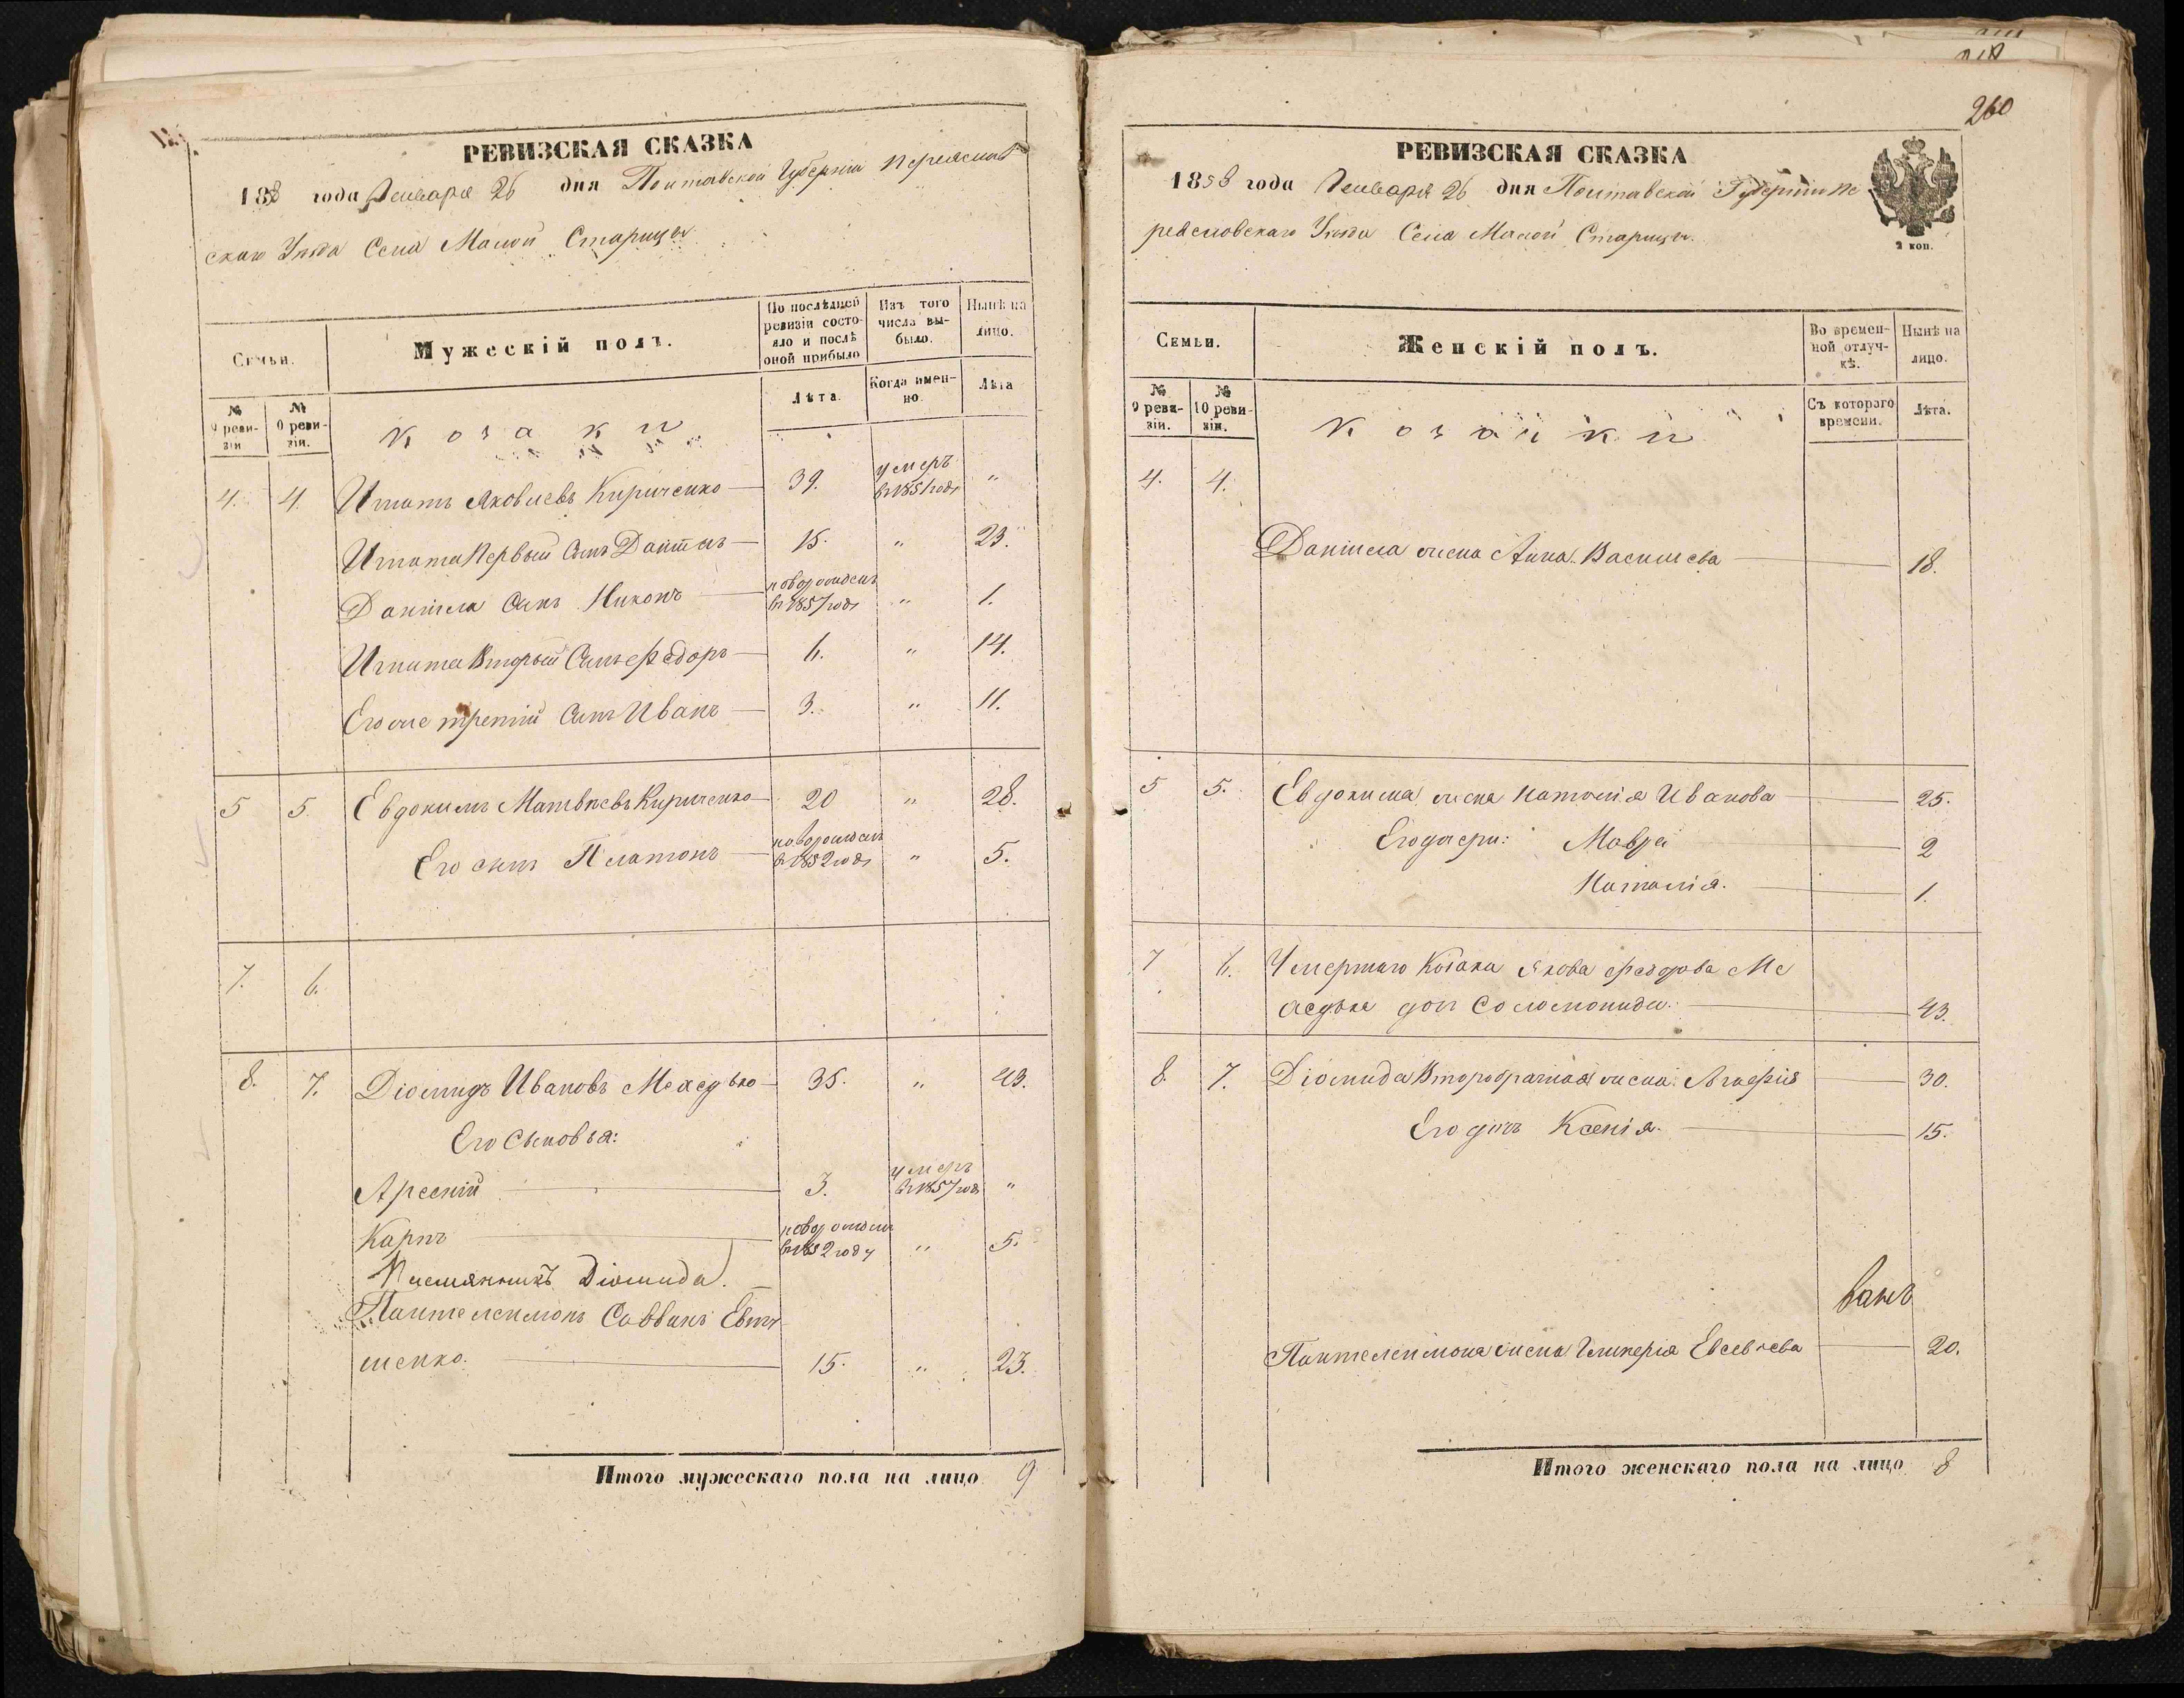 РЕВИЗСКАЯ СКАЗКА
1858 года Января 26 дня Полтавской Губерніи Переяслов
скаго Уѣзда Села Малой Старицы
Семьи.
Мужескій полъ.
По послѣдней ревизіи состояло и послѣ оной прибыло
Изъ того числа выбыло.
Нынѣ на лицо.
№ 9 ревизіи
№ 10 ревизіи.
Козаки
Лѣта.
Когда именно.
Лѣта
4. 4. Игнатъ Яковлевъ Кириченко 39. умеръ въ 1851 годѣ "
Игната Первый Сынъ Даніилъ 15. " 23.
Даніила Сынъ Никонъ новорожденъ въ 1857 годѣ " 1.
Игната Вторый Сынъ Федоръ 6. " 14.
Его же третій Сынъ Иванъ 3. " 11.
5 5. Евдокимъ Матвѣевъ Кириченко 20 " 28.
Его сынъ Платонъ новорожденъ въ 1852 годѣ " 5.
7. 6.
8. 7. Діомидъ Ивановъ 35. " 43.
Его Сыновья:
Арсеній 3. умеръ въ 1857 годѣ "
Карпъ новорожденъ въ 1852 году " 5.
Племянникъ Діомида
Пантелеимонъ Саввинъ Евту-
шенко. 15. " 23.
Итого мужескаго пола на лицо 9
260
РЕВИЗСКАЯ СКАЗКА
1858 года Января 26 дня Полтавской Губерніи Пе
реясловскаго Уѣзда Села Малой Старицы.
2 коп.
Семьи.
Женскій полъ.
Во временной отлучкѣ.
Нынѣ на лицо.
№ 9 ревизіи.
№ 10 ревизіи.
Козачки
Съ котораго времени.
Лѣта.
4. 4.
Даніила жена Анна Васильева 18.
5 5. Евдокима жена Наталія Иванова 25.
Его дочери: Мавра 2
Наталія. 1.
7 6. Умершаго Козака Якова Федорова Ме
дочь Соломонида. 43.
8. 7. Діомида Второбрачная жена Агафія 30.
Его дочь Ксенія. 15.
ванъ
Пантелеимона жена Гликерія Евсевіева 20.
Итого женскаго пола на лицо 8